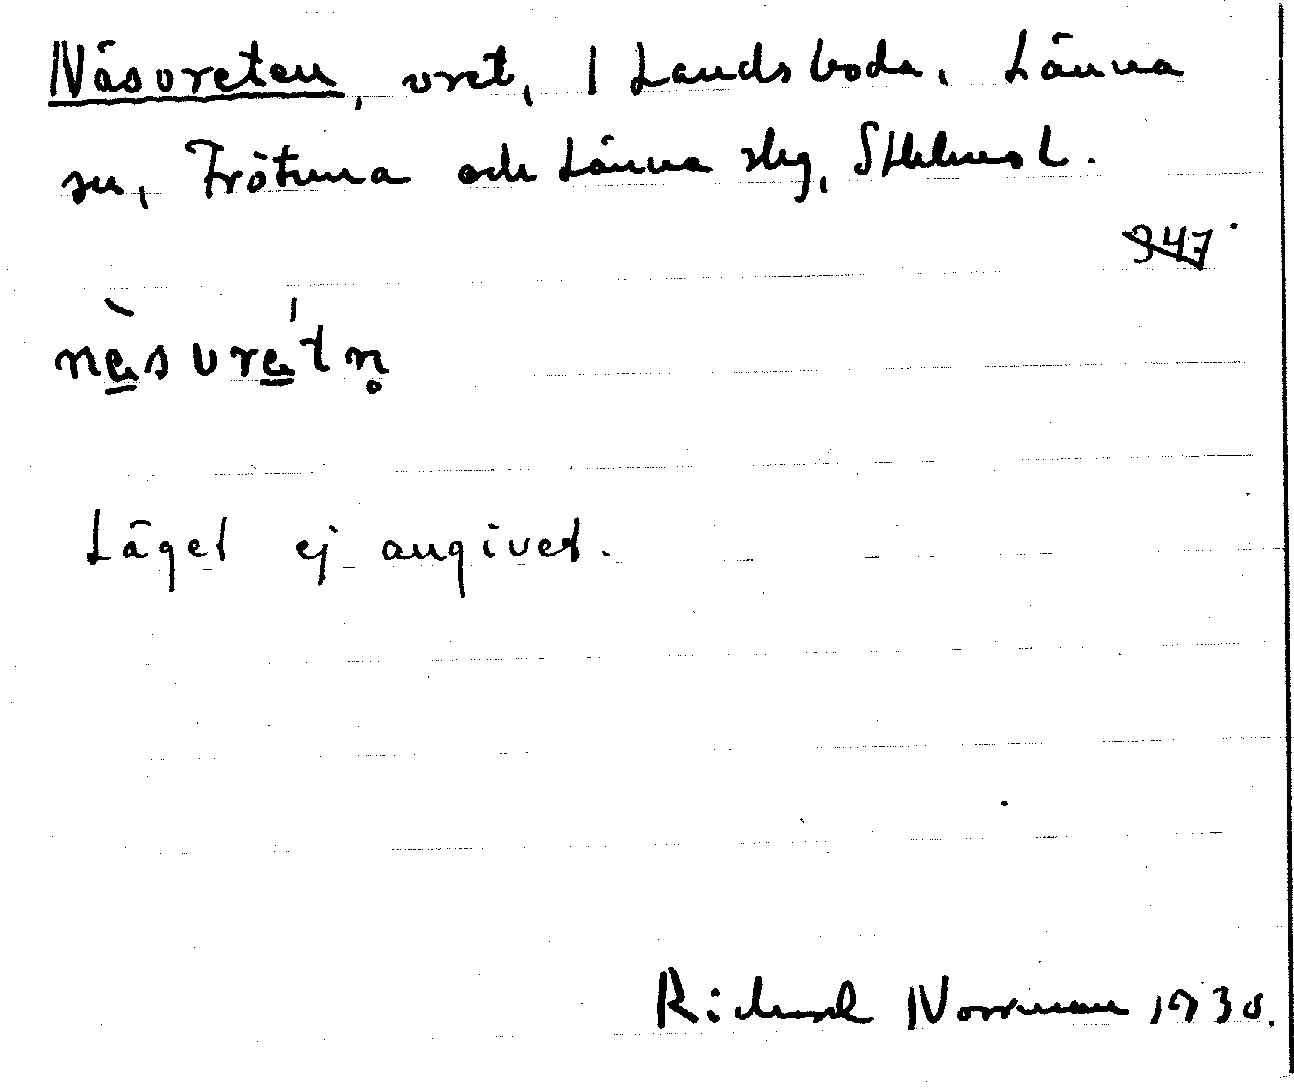 Näsvreten, vret, 1 Landsboda, Länna
sn, Frötuna och Länna slg, Sthlms l.
947
nèsvre̍tn̥
Läget ej angivet.
Richard Norrman 1930.